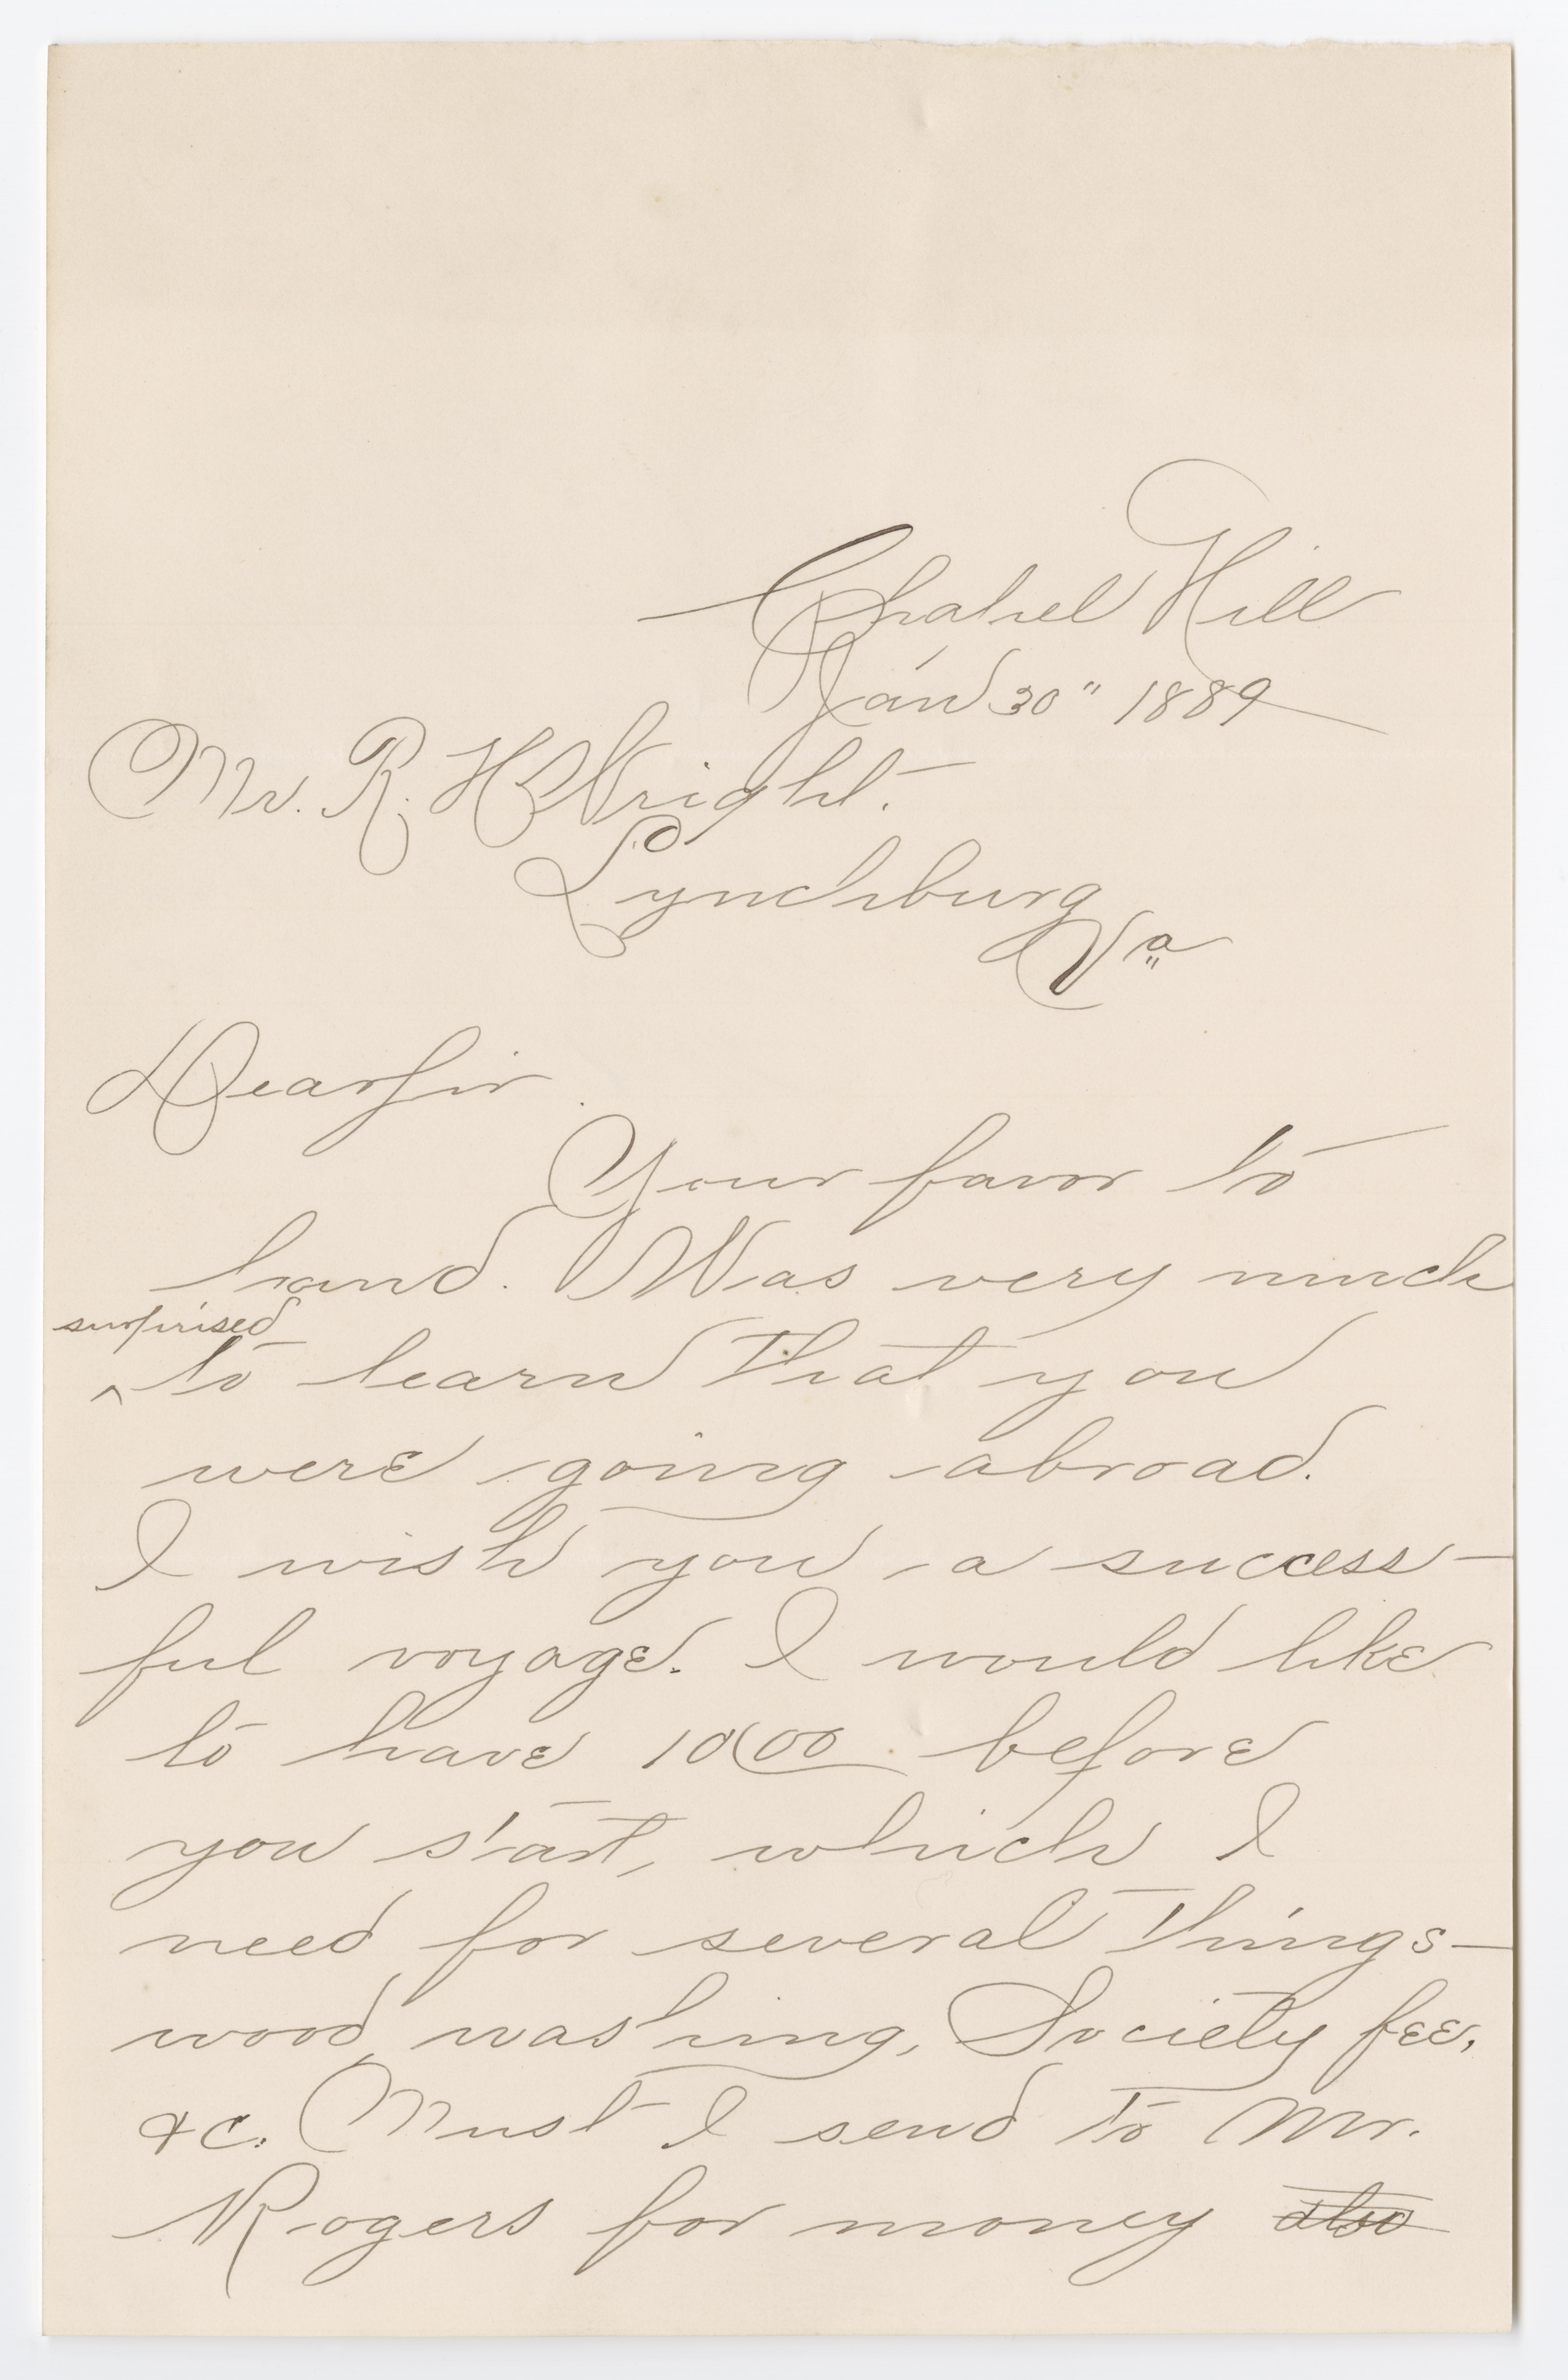 Chapel Hill
Jan 30" 1889
Mr. R. H Wright.
Lynchburg
Va
Dear Sir
Your favor to
hand. Was very much
surprised
^ to learn that you
were going abroad.
I wish you a success-
ful voyage. I would like
to have 10 00 before
you start, which I
need for several things-
wood, washing, Society fee,
&c. Must I send to Mr.
Rogers for money also